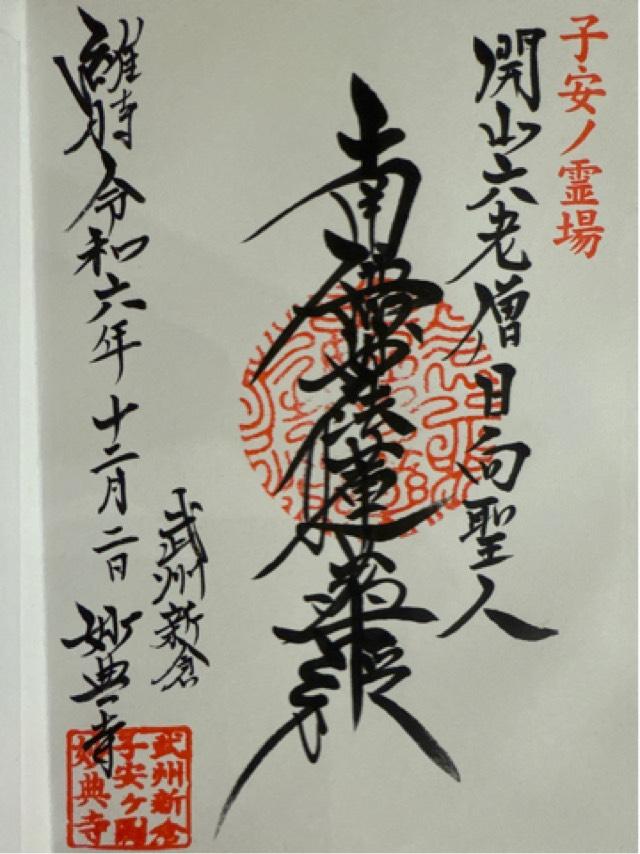 子安ノ霊場
開山六老僧日向聖人
南無妙法蓮華経
維時 令和六年 十二月二日
武州新倉
妙典寺
武州新倉
子安ヶ池
妙典寺